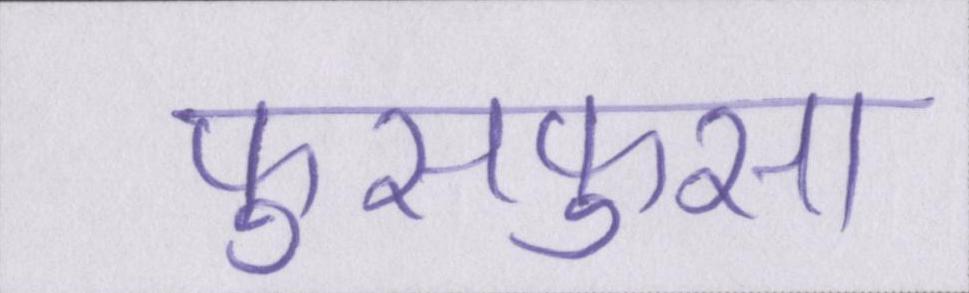 फुसफुसा